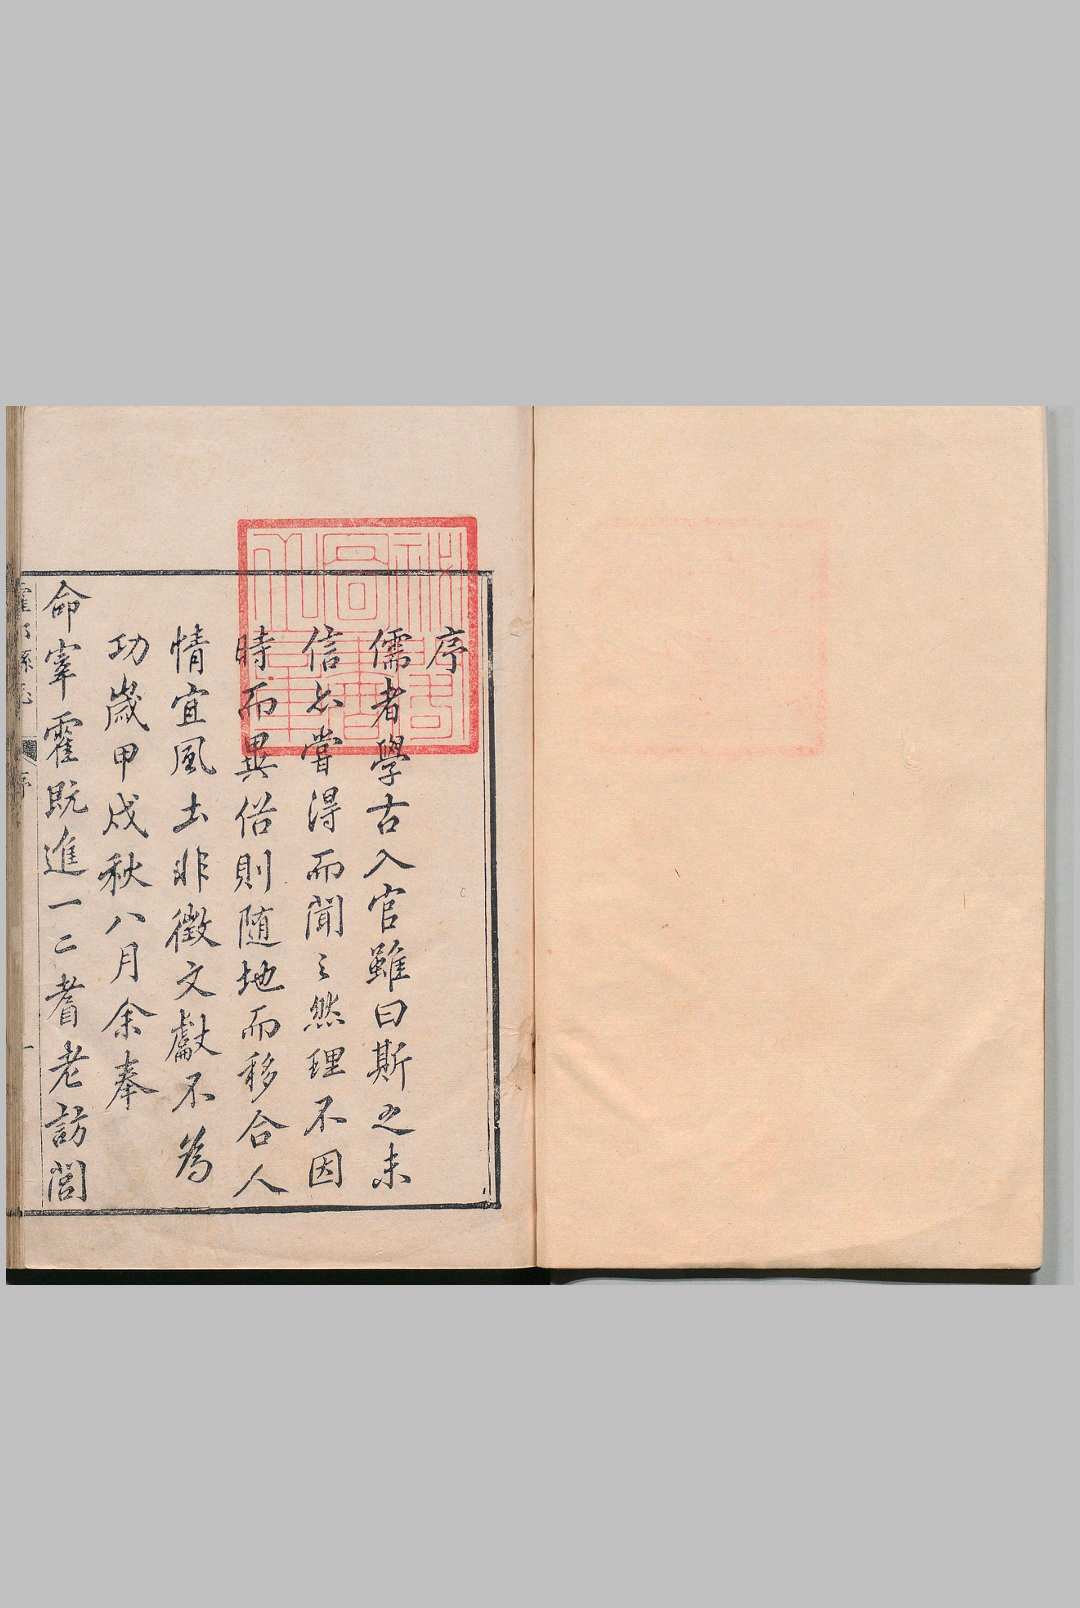 序
儒者學古入官雖曰斯之未
信亦嘗得而聞之然理不因
時而異俗則隨地而移合人
情宜風土非徵文獻不為
功歲甲戌秋八月余奉
命宰霍既進一二耆老訪閭